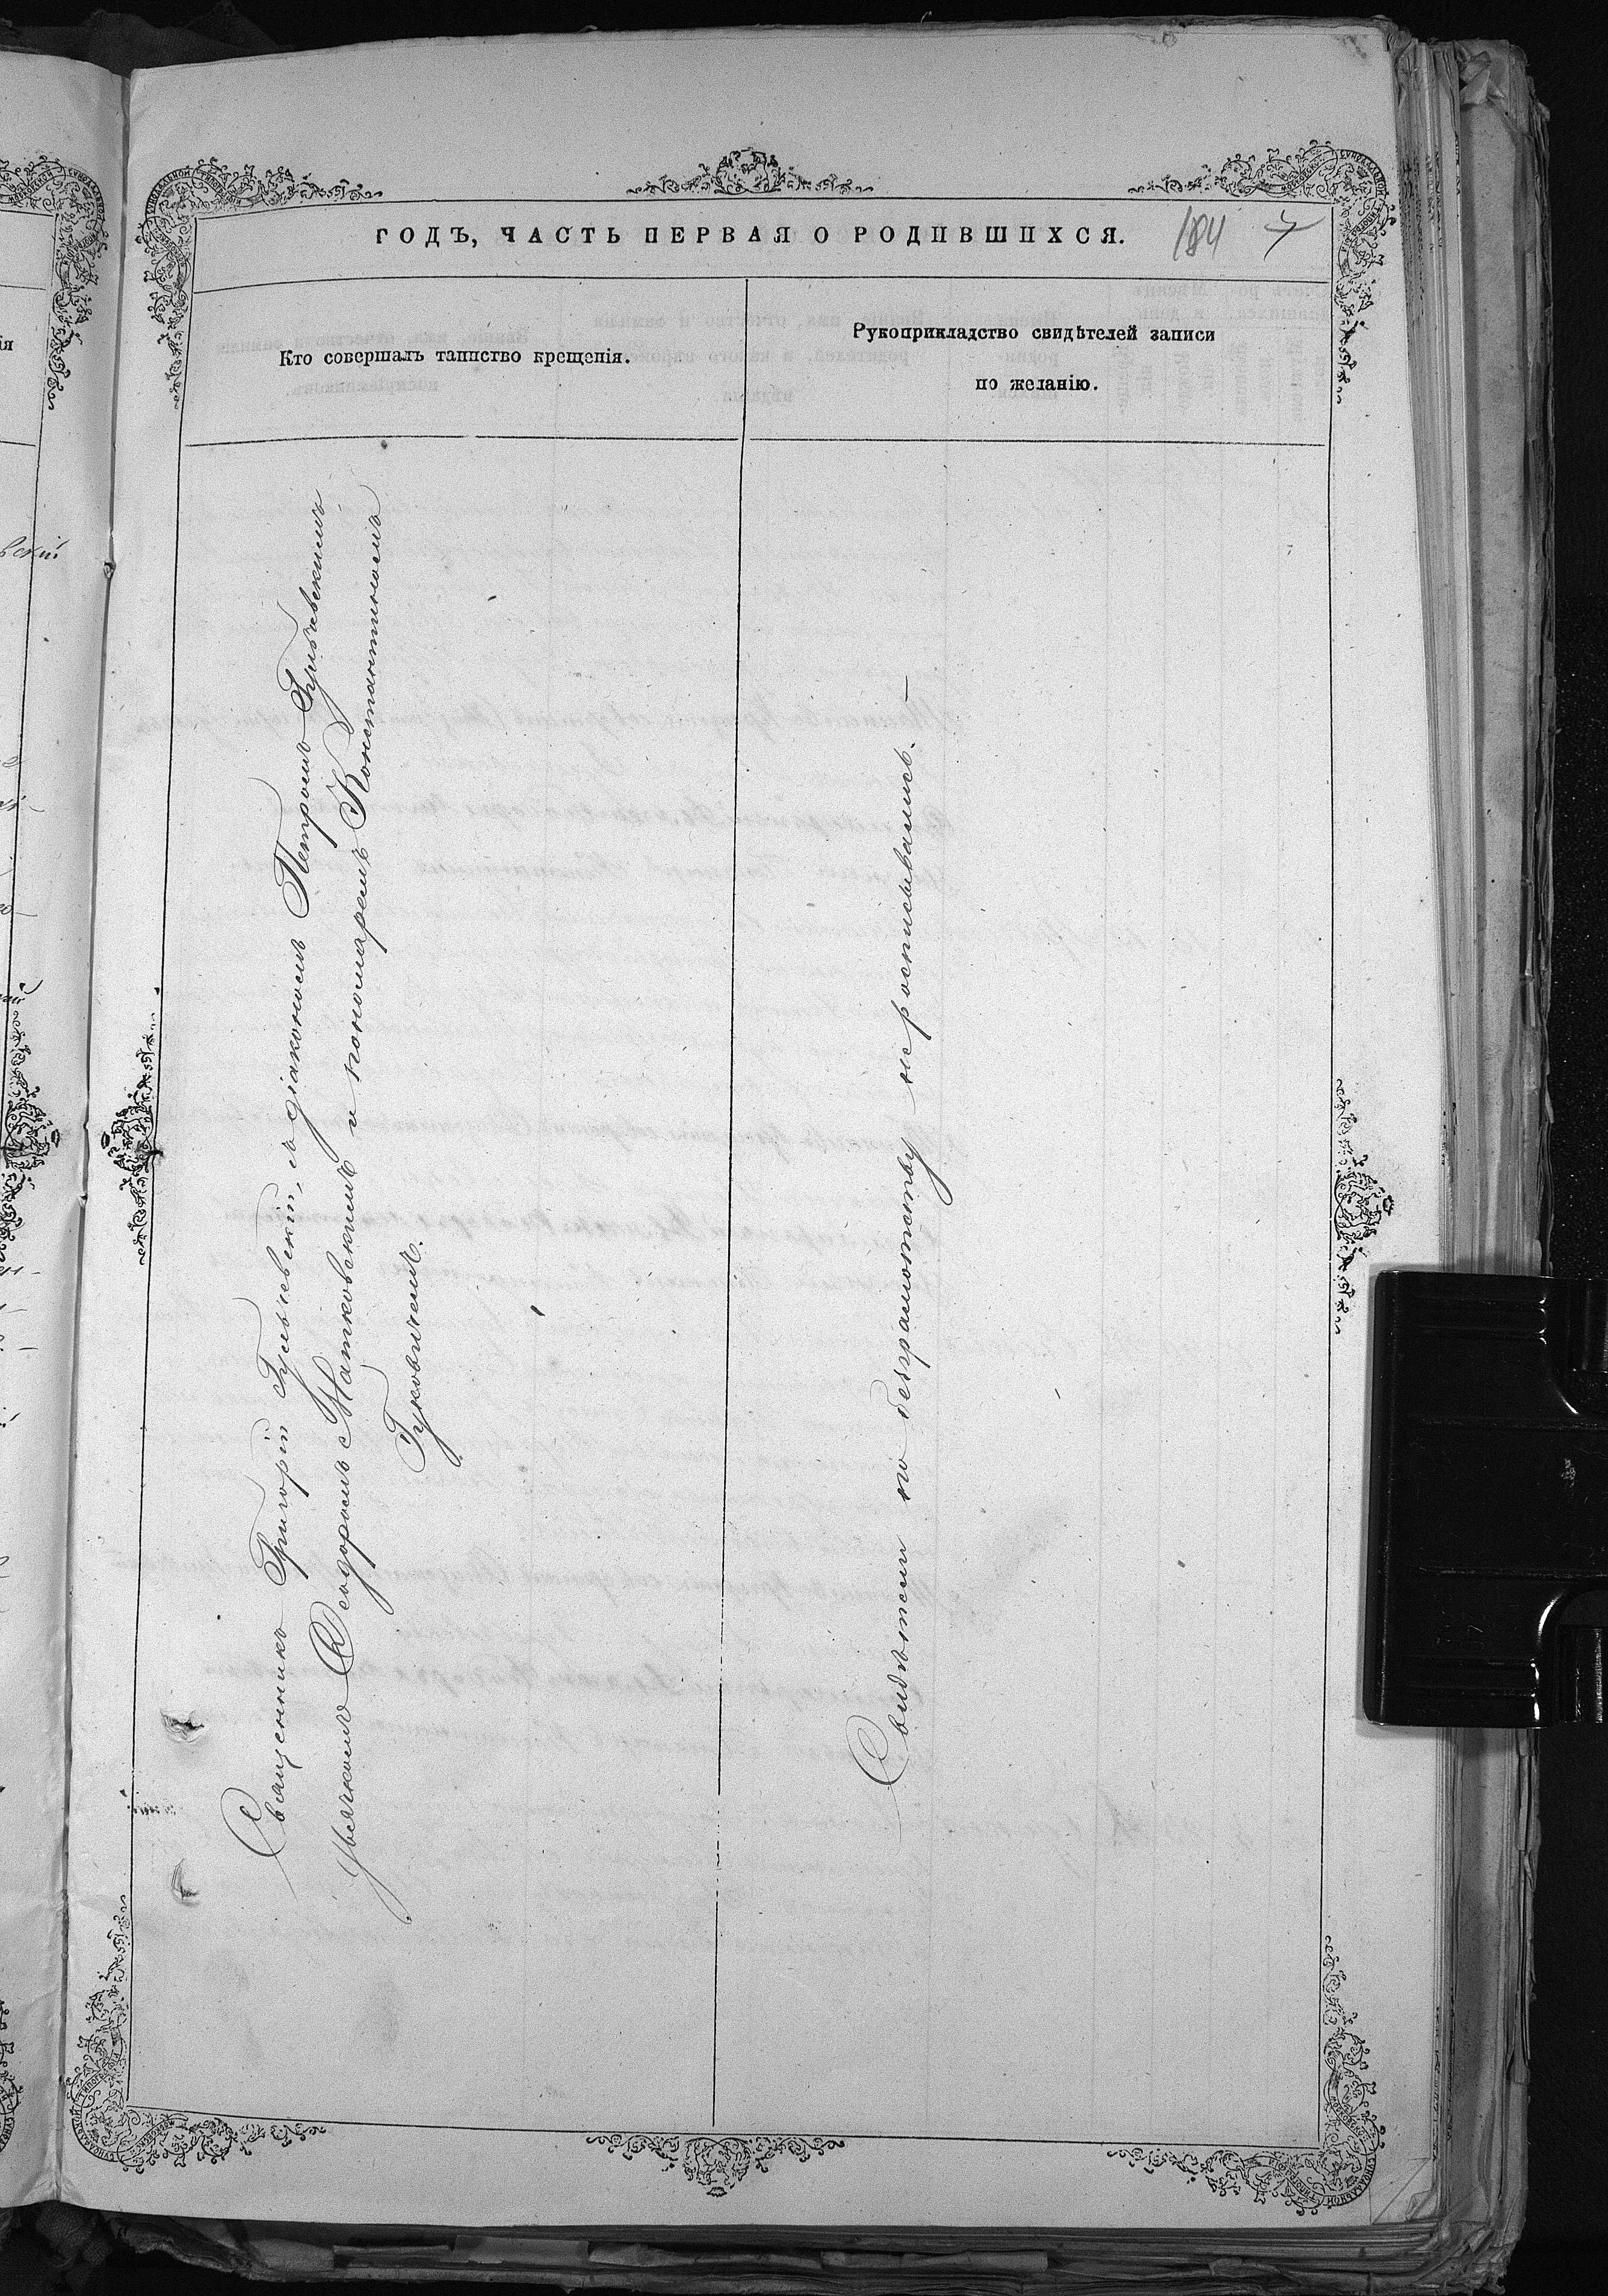 ГОДЪ, ЧАСТЬ ПЕРВАЯ О РОДИВШИХСЯ.
184
Кто совершалъ таинство крещенія.
Рукоприкладство свидѣтелей записи
по желанію.
Священникъ Григорій Гульчевскій, съ діакономъ Петромъ Гульчевскимъ
Ѳеодоромъ Матковскимъ и пономаремъ Константиномъ
Гуковичемъ.
Свидѣтели по безграмотству не росписывались.–